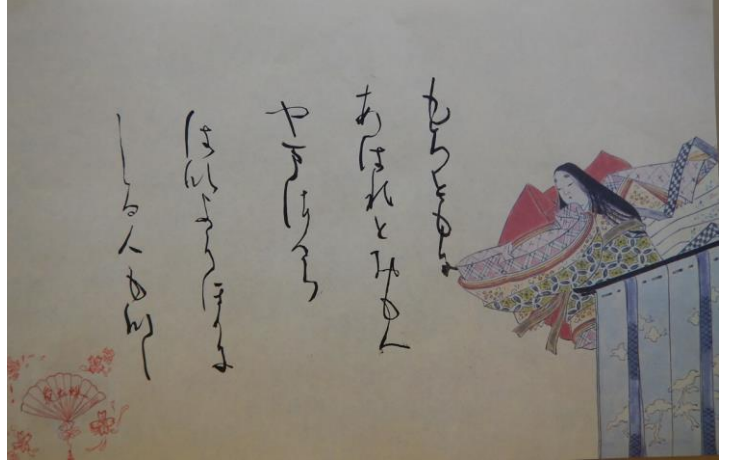 もろともに
あはれとおもへ
やまさくら
はなよりほかに
しる人もなし